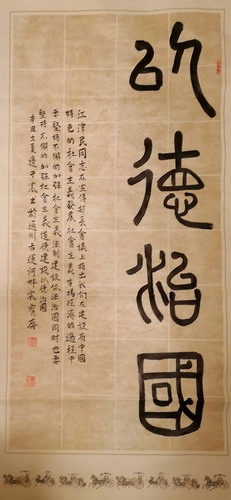 以德治國
江澤民同志在宣傳部長會議上指出我們在建設有中國
特色的社會主義發展社會主義市場經濟的過程中
要堅持不懈的加強社會主義法制建設依法治國同時也要
堅持不懈的加強社會主義道德建設以德治國
辛丑夏邊平書於通州古運河畔